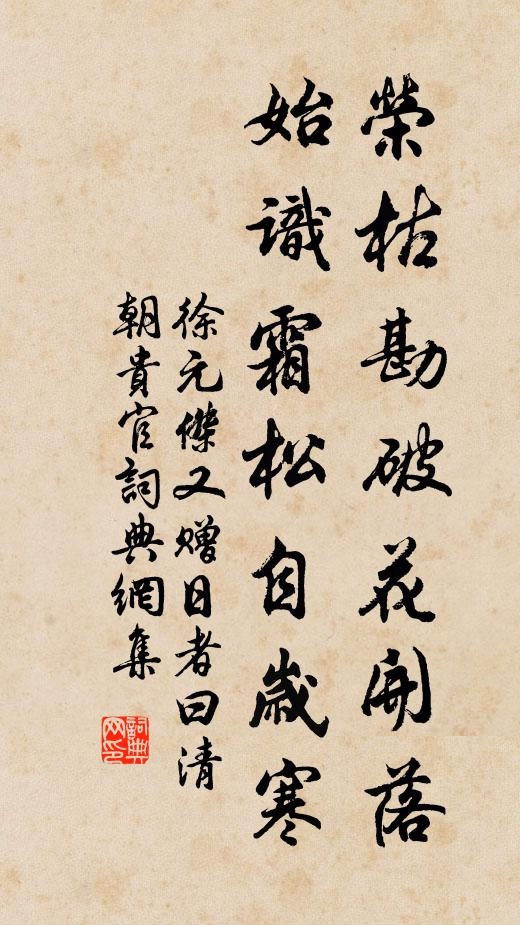 榮枯勘破花開落
始識霜松自歲寒
徐元傑又赠日者曰清
朝貴官詞典網集
詞典网印